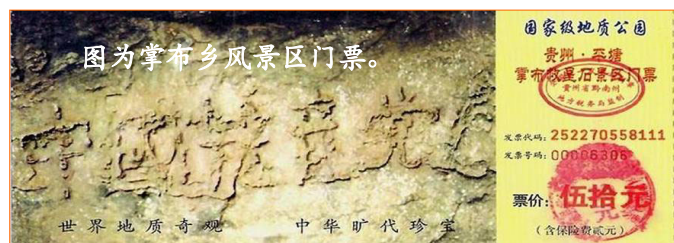 图为掌布乡风景区门票。
世界地质奇观 中华旷代珍宝
国家级地质公园
贵州·平塘
掌布救星石景区门票
贵州省黔南州
地方税务局监制
发票代码:252270558111
发票号码:00006306
票价:伍拾元
(含保险费贰元)